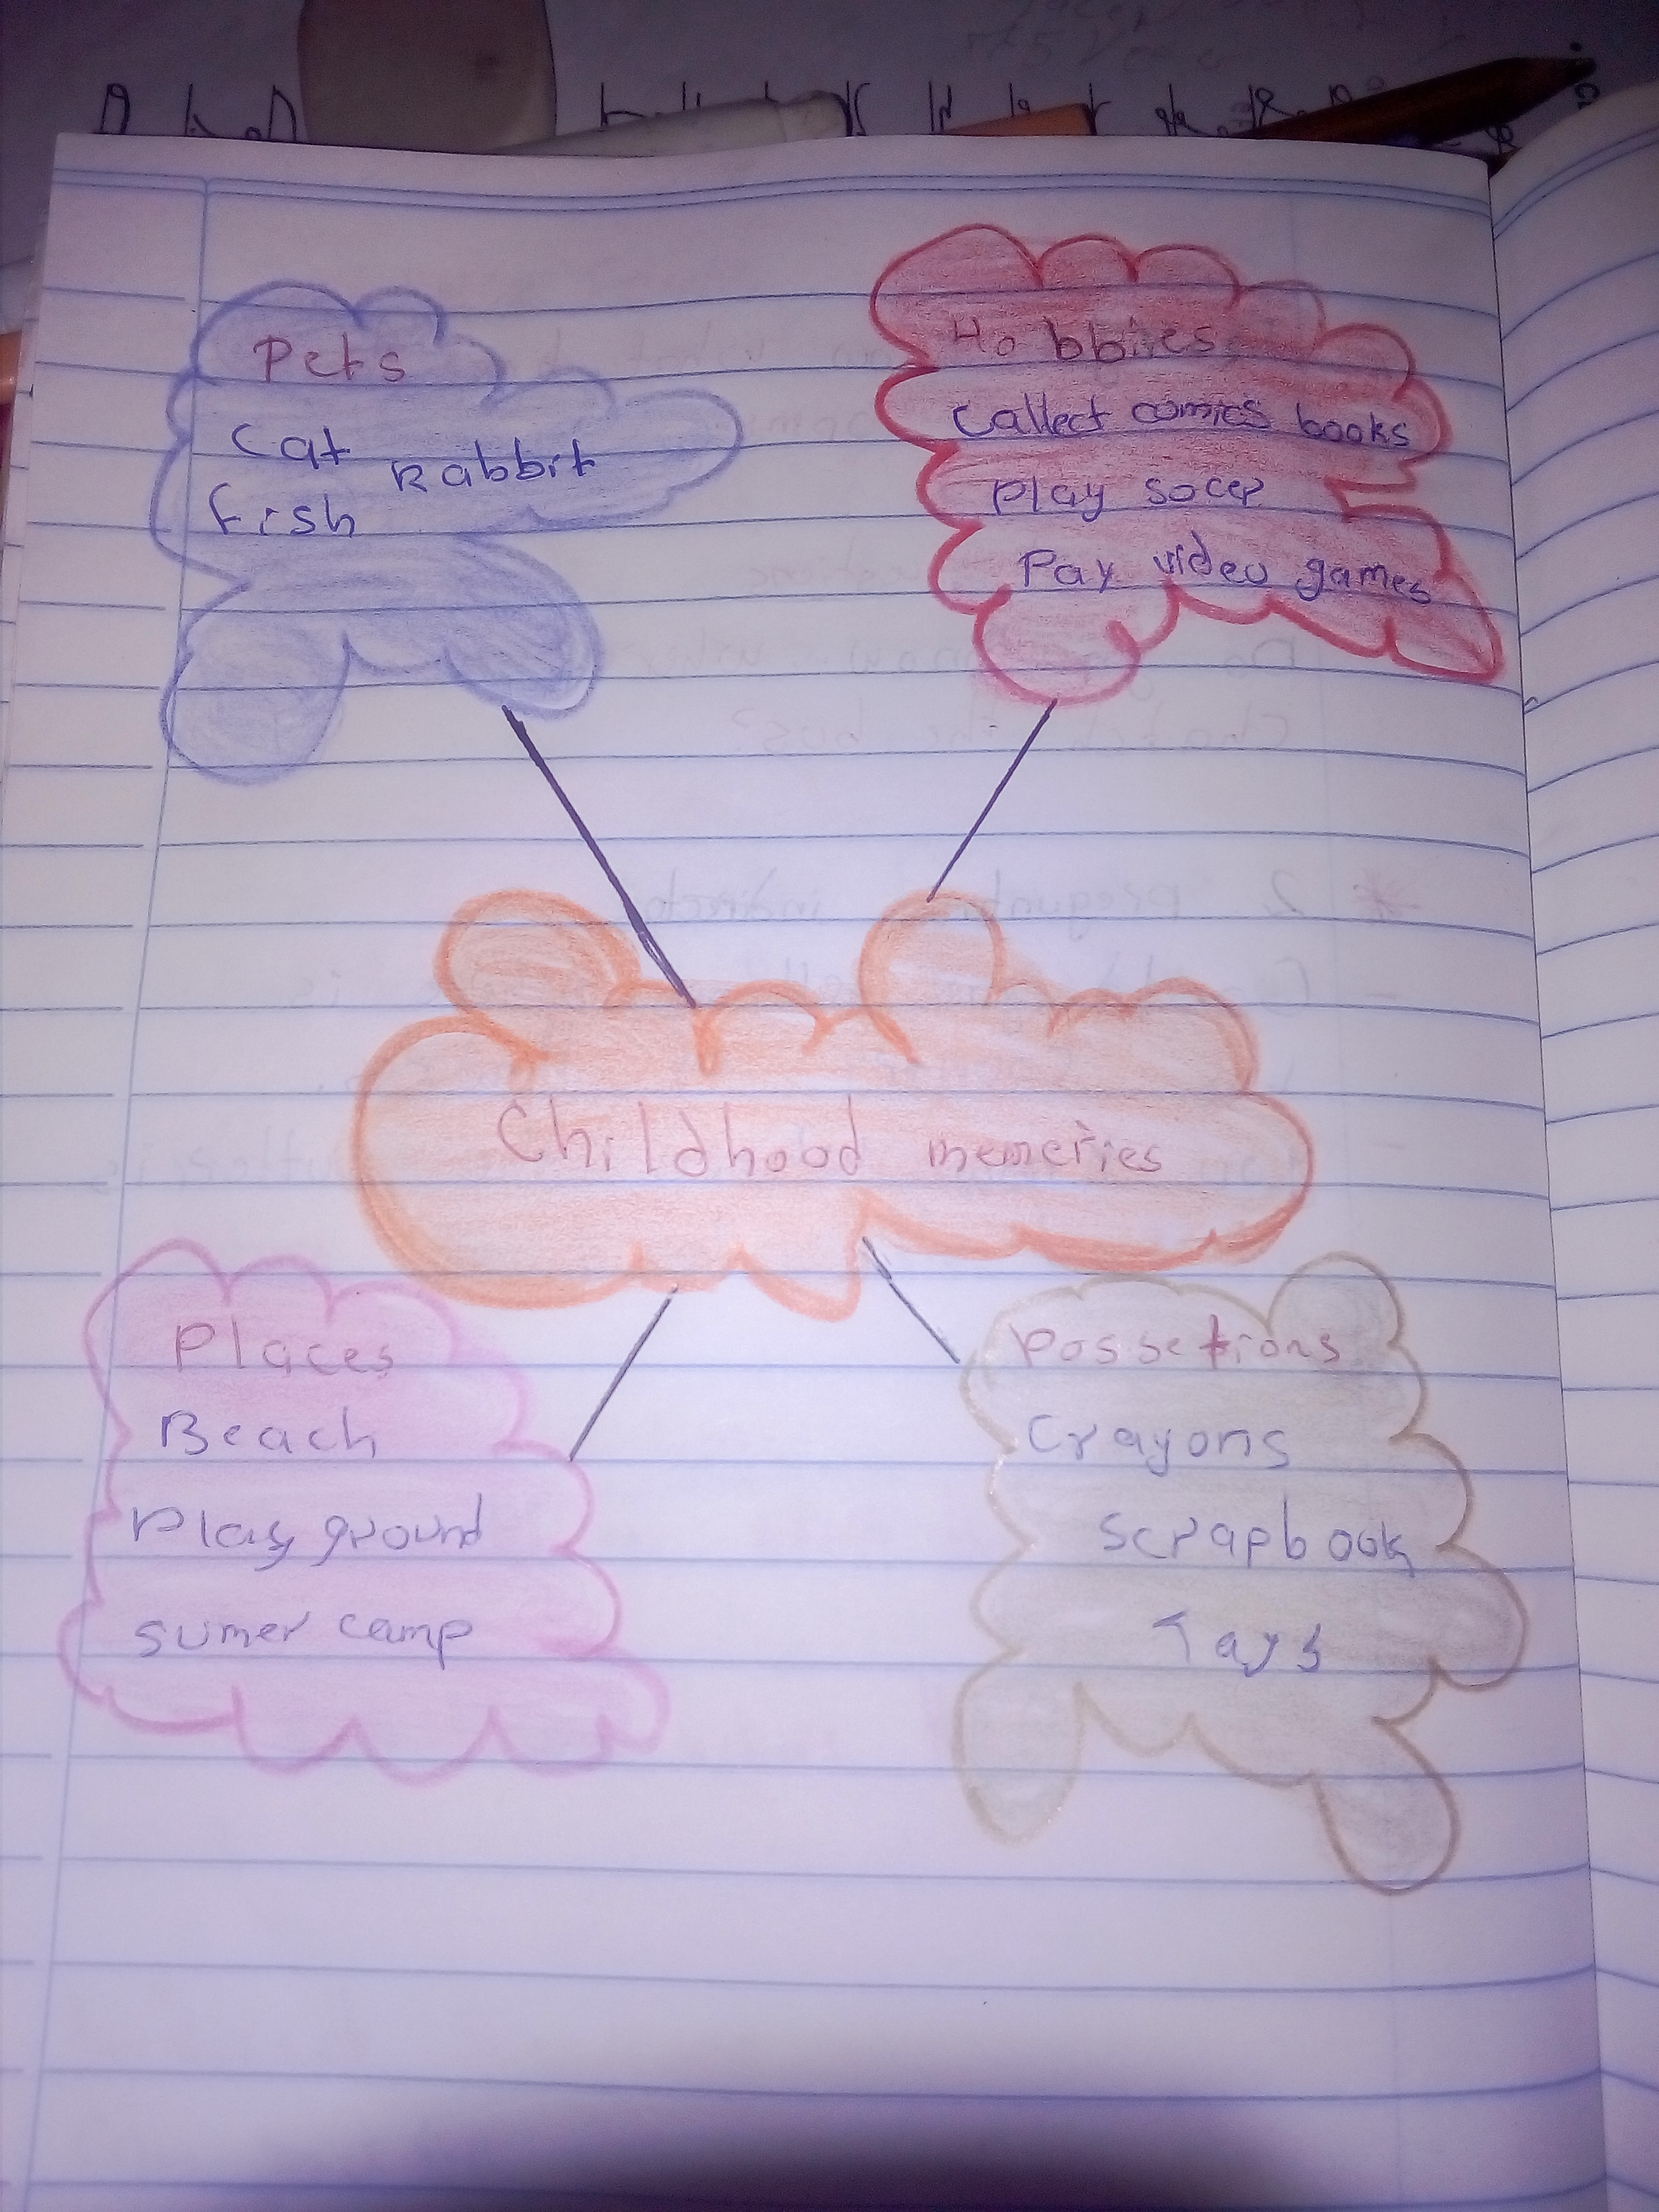 Pets
Cat Rabbit
fish
Hobbies
Callect comics books
Play socer
Pay video games
Childhood memeries
Places
Beach
Play ground
sumer camp
Possetions
Crayons
Scrapbook
Tays